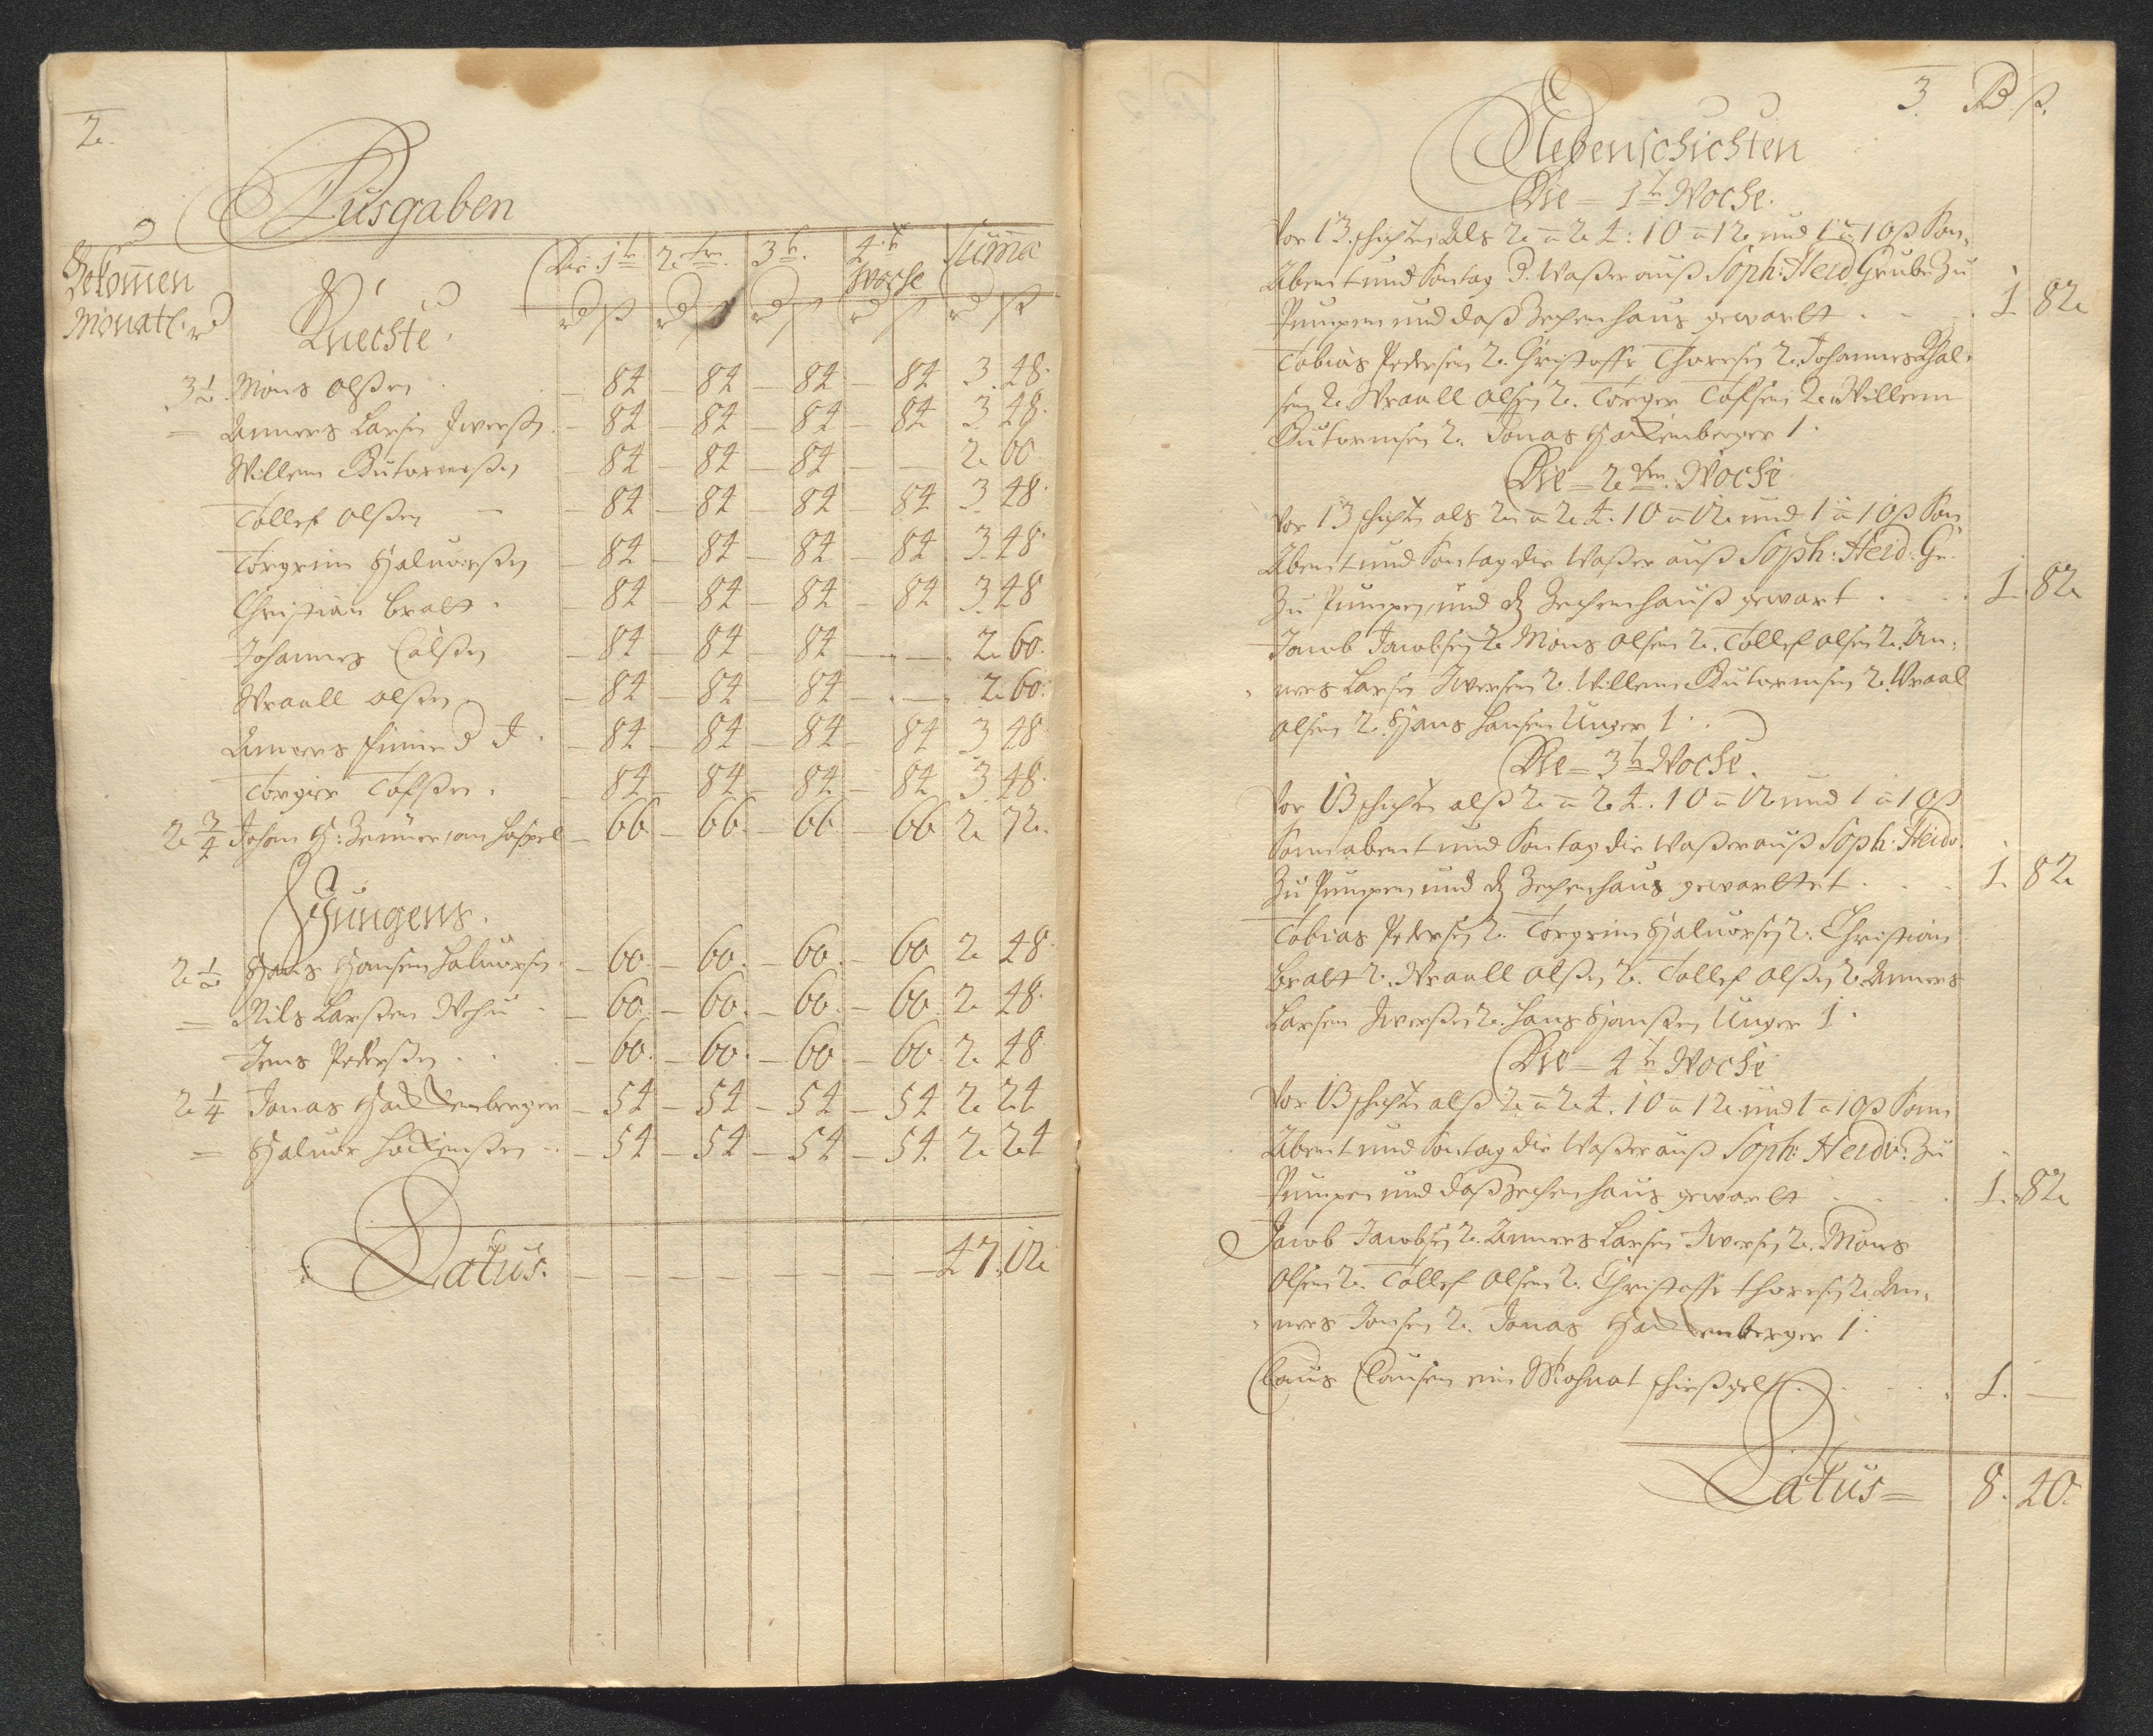 2.
Ausgaben
Bekom̄en Monatl. rd
Knechte.
Die 1te 2ten 3te 4te Woche Sum̄a
rd ß rd ß rd ß rd ß rd ß
3½ Mons Olßen – 84 – 84 – 84 – 84 3. 48.
= Anners Larsen Iverßen – 84 – 84 – 84 – 84 3. 48.
Willem Gutormßen – 84 – 84 – 84 – – 2. 60.
Tollef Olßen – 84 – 84 – 84 – 84 3. 48.
Torgrim Haluorßen – 84 – 84 – 84 – 84 3. 48.
Christian bralt – 84 – 84 – 84 – 84 3. 48
Johannes Calßen – 84 – 84 – 84 – – 2. 60.
Wraall Olßen – 84 – 84 – 84 – – 2. 60.
Anners finne – 84 – 84 – 84 – 84 3 48
Torger Tofßen – 84 – 84 – 84 – 84 3. 48.
2¾ Johan am haspel – 66 – 66 – 66 – 66 2. 72.
Jungens.
2½ Hans Hansen Haluorsen – 60 – 60 – 60 – 60 2. 48.
= Nils Larßen – 60 – 60 – 60 – 60 2. 48.
Jens Pederßen – 60 – 60 – 60 – 60 2. 48
2¼ Jonas Hackenberger – 54 – 54 – 54 – 54 2. 24
= Haluor – 54 – 54 – 54 – 54 2. 24
Latus. – – – – 47. 12.
3. Rd ß.
Nebenschichten
Die = 1te Woche.
Vor 13 schichten Als 2 a 24: 10 a 12 und 1 a 10 ß Son¬
Abent und Sontag d. Waßer auß Soph: Heid Grube Zu
Pumpen und daß Zechenhaus gewacht . . . 1. 82
Tobias Pedersen 2. Christoffer Thoresen 2. Johannes Chal¬
sen 2. Wraall Olsen 2. Torger Tofsen 2. Willem
Gutormsen 2. Jonas Hackenberger 1.
Die = 2ten Woche
Vor 13 schichten als 2 a 24. 10 a 12 und 1 a 10 ß Son¬
Abent und Sontag die Waßer auß Soph: Heid: Gr.
Zu Pumpen und dz Zechenhauß gewart . . . 1. 82
Jacob Jacobsen 2. Mons Olsen 2. Tollef Olsen 2. An¬
ners Larsen Iversen 2. Willem Gutormsen 2. Wraal
Olsen 2. Hans Hansen Unger 1.
Die = 3te Woche.
Vor 13 schichten alß 2 a 24. 10 a 12 und 1 a 10 ß
Sonnabent und Sontag die Waßer auß Soph: Heidv.
Zu Pumpen und dz Zechenhaus gewachtet . . . 1. 82
Tobias Pedersen 2. Torgrim Haluorsen 2. Christian
bralt 2. Wraall Olßen 2. Tollef Olßen 2. Anners
Larsen Iverßen 2. Hans Hanßen Unger 1.
Die = 4te Woche
Vor 13 schichten alß 2 a 24. 10 a 12 und 1 a 10 ß Sonn
Abent und Sontag die Waßer auß Soph: Heidv: Zu
Pumpen und daß Zechenhaus gewacht . . . 1. 82
Jacob Jacobsen 2. Anners Larsen Iversen 2. Mons
Olsen 2. Tollef Olsen 2. Christoffer Thoresen 2. An¬
ners Jonsen 2. Jonas Hackenberger 1.
Claus Clausen ein Mohnat schießgelt . . . 1. –
Latus = 8. 40.